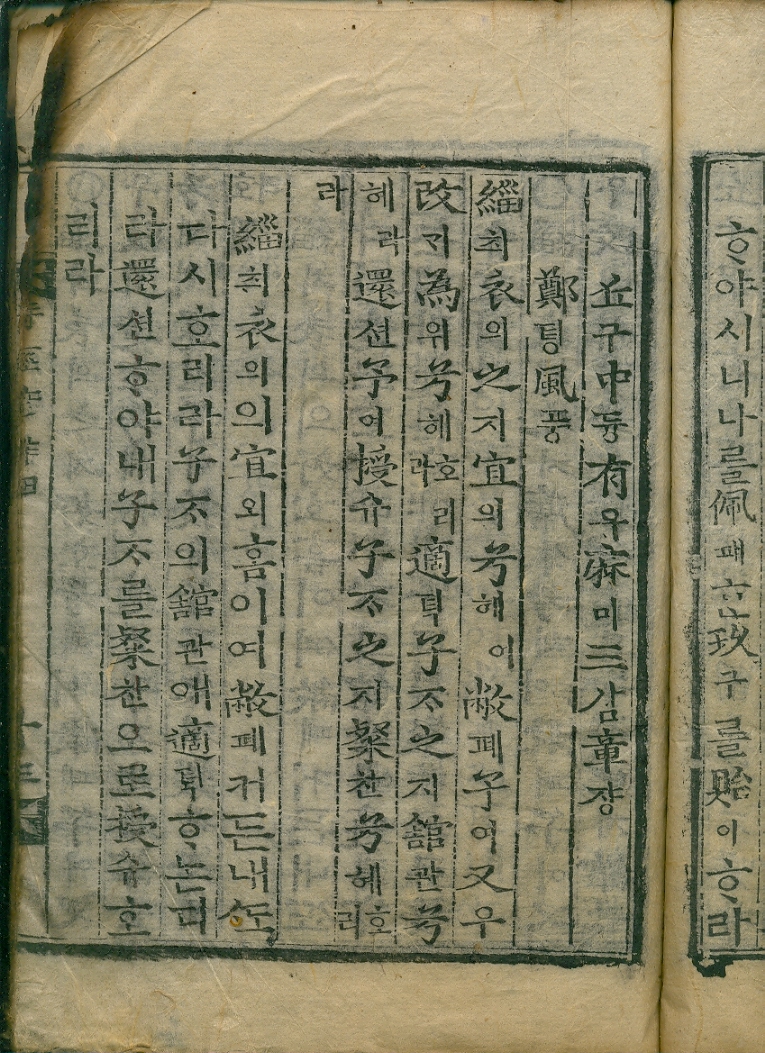 ᄒᆞ야시니나를佩패ᄒᆞᆫ玖구를貽이ᄒᆞ라
丘구中듕有우麻마三삼章쟝
鄭뎡風풍
緇츼衣의之지宜의兮혜이 敝폐予여又우
改ᄀᆡ為위兮혜호리라 適뎍子ᄌᆞ之지館관兮
혜라 還션予여授슈子ᄌᆞ之지粲찬兮혜호리
라
緇츼衣의의宜의홈이여敝폐커든내ᄯᅩ
다시호리라子ᄌᆞ의館관애適뎍ᄒᆞ논디
라還션ᄒᆞ야내子ᄌᆞ를粲찬으로授슈호
리라